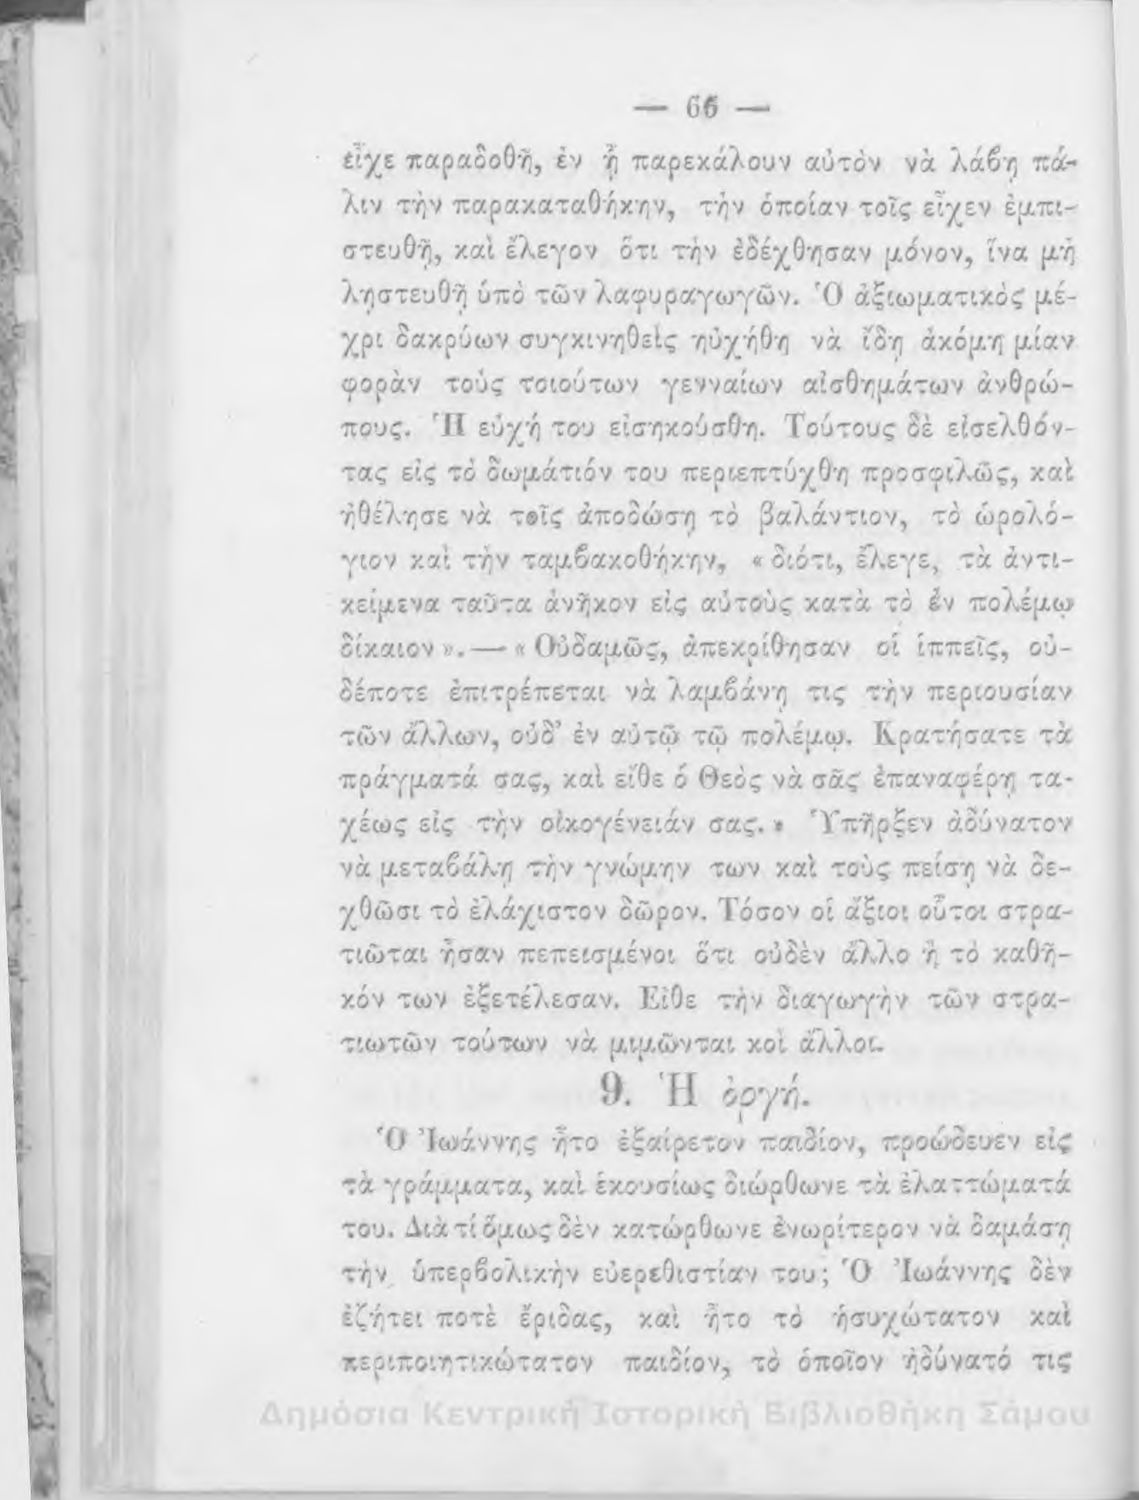 — 66 —
εἶχε παραδοθῆ, ἐν ᾗ παρεκάλουν αὐτὸν νὰ λάβῃ πά-
λιν τὴν παρακαταθήκην, τὴν ὁποίαν τοῖς εἶχεν ἐμπι-
στευθῆ, καὶ ἔλεγον ὅτι τὴν ἐδέχθησαν μόνον, ἵνα μὴ
ληστευθῇ ὑπὸ τῶν λαφυραγωγῶν. Ὁ ἀξιωματικὸς μέ-
χρι δακρύων συγκινηθεὶς ηὐχήθη νὰ ἴδῃ ἀκόμη μίαν
φορὰν τοὺς τοιούτων γενναίων αἰσθημάτων ἀνθρώ-
πους. Ἡ εὐχή του εἰσηκούσθη. Τούτους δὲ εἰσελθόν-
τας εἰς τὸ δωμάτιόν του περιεπτύχθη προσφιλῶς, καὶ
ἠθέλησε νὰ τοῖς ἀποδώσῃ τὸ βαλάντιον, τὸ ὡρολό-
γιον καὶ τὴν ταμβακοθήκην, « διότι, ἔλεγε, τὰ ἀντι-
κείμενα ταῦτα ἀνῆκον εἰς αὐτοὺς κατὰ τὸ ἐν πολέμῳ
δίκαιον ».—« Οὐδαμῶς, ἀπεκρίθησαν οἱ ἱππεῖς, οὐ-
δέποτε ἐπιτρέπεται νὰ λαμβάνῃ τις τὴν περιουσίαν
τῶν ἄλλων, οὐδ’ ἐν αὐτῷ τῷ πολέμῳ. Κρατήσατε τὰ
πράγματά σας, καὶ εἴθε ὁ Θεὸς νὰ σᾶς ἐπαναφέρῃ τα-
χέως εἰς τὴν οἰκογένειάν σας. » Ὑπῆρξεν ἀδύνατον
νὰ μεταβάλῃ τὴν γνώμην των καὶ τοὺς πείσῃ νὰ δε-
χθῶσι τὸ ἐλάχιστον δῶρον. Τόσον οἱ ἄξιοι οὗτοι στρα-
τιῶται ἦσαν πεπεισμένοι ὅτι οὐδὲν ἄλλο ἢ τὸ καθῆ-
κόν των ἐξετέλεσαν. Εἴθε τὴν διαγωγὴν τῶν στρα-
τιωτῶν τούτων νὰ μιμῶνται κοὶ ἄλλοι.
9. Ἡ ὀργή.
Ὁ Ἰωάννης ἦτο ἐξαίρετον παιδίον, προώδευεν εἰς
τὰ γράμματα, καὶ ἑκουσίως διώρθωνε τὰ ἐλαττώματά
του. Διὰ τί ὅμως δὲν κατώρθωνε ἐνωρίτερον νὰ δαμάσῃ
τὴν ὑπερβολικὴν εὐερεθιστίαν του; Ὁ Ἰωάννης δὲν
ἐζήτει ποτὲ ἔριδας, καὶ ἦτο τὸ ἡσυχώτατον καὶ
περιποιητικώτατον παιδίον, τὸ ὁποῖον ἠδύνατό τις
Δημόσια Κεντρική Ιστορική Βιβλιοθήκη Σάμου